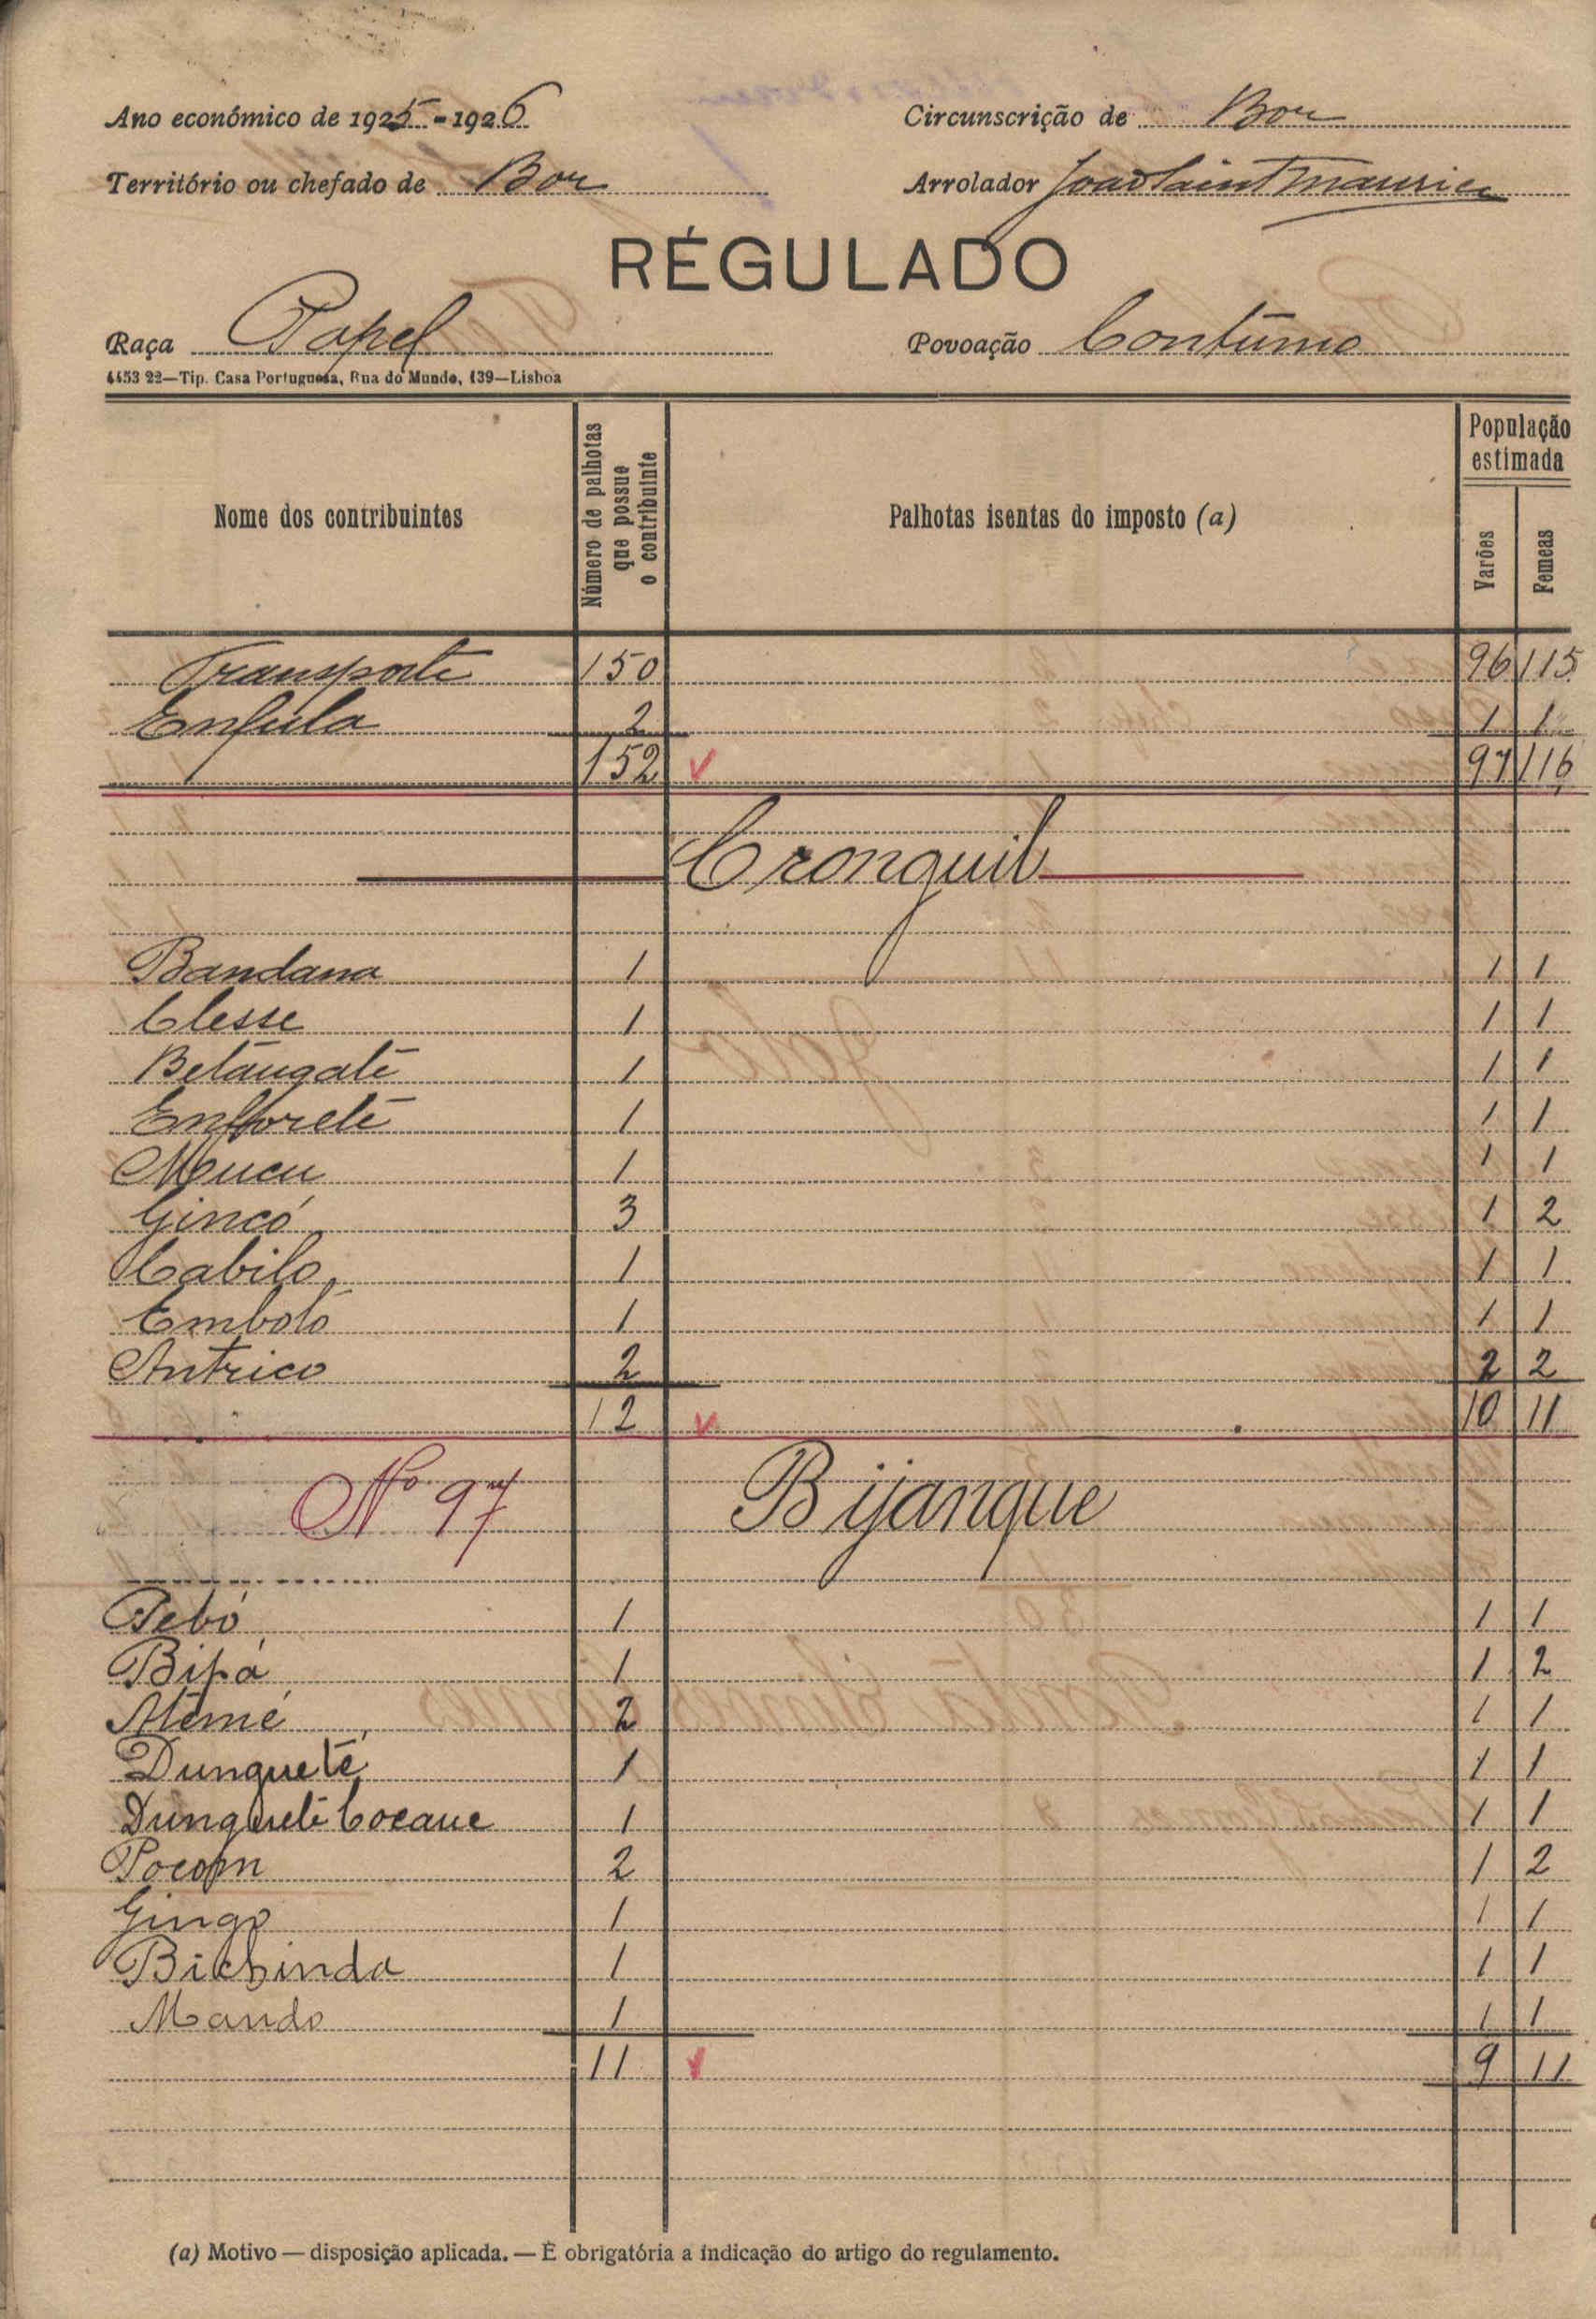 Ano económico de 1925-1926 Circunscrição de Bor
Território ou chefado de Bor Arrolador João Saint Maurice
RÉGULADO
Raça Papel Povoação Contumo
4453 22—Tip. Casa Portuguesa, Rua do Mundo, 139—Lisboa
Nome dos contribuintes Número de palhotas que possue o contribuinte Palhotas isentas do imposto (a) População estimada Varões Femeas
Transporte 150 96 115
Enfula 2 1 1
152 97 116
Cronquil
Bandana 1 1 1
Clesse 1 1 1
Betangaté 1 1 1
1 1 1
Mucu 1 1 1
Gincó 3 1 2
Cabilo 1 1 1
Emboló 1 1 1
Antrico 2 2 2
12 10 11
Nº 97 Bijanque
Pebó 1 1 1
Bipá 1 1 2
Atémé 2 1 1
Dunqueté 1 1 1
Dunqueté Cocaue 1 1 1
Pocom 2 1 2
Gingo 1 1 1
Bichinda 1 1 1
Mando 1 1 1
11 9 11
(a) Motivo — disposição aplicada. — É obrigatória a indicação do artigo do regulamento.